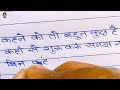 कहने को तो बहुत कुछ है
कहाँ से शुरू करूं समझ न
बिन कह